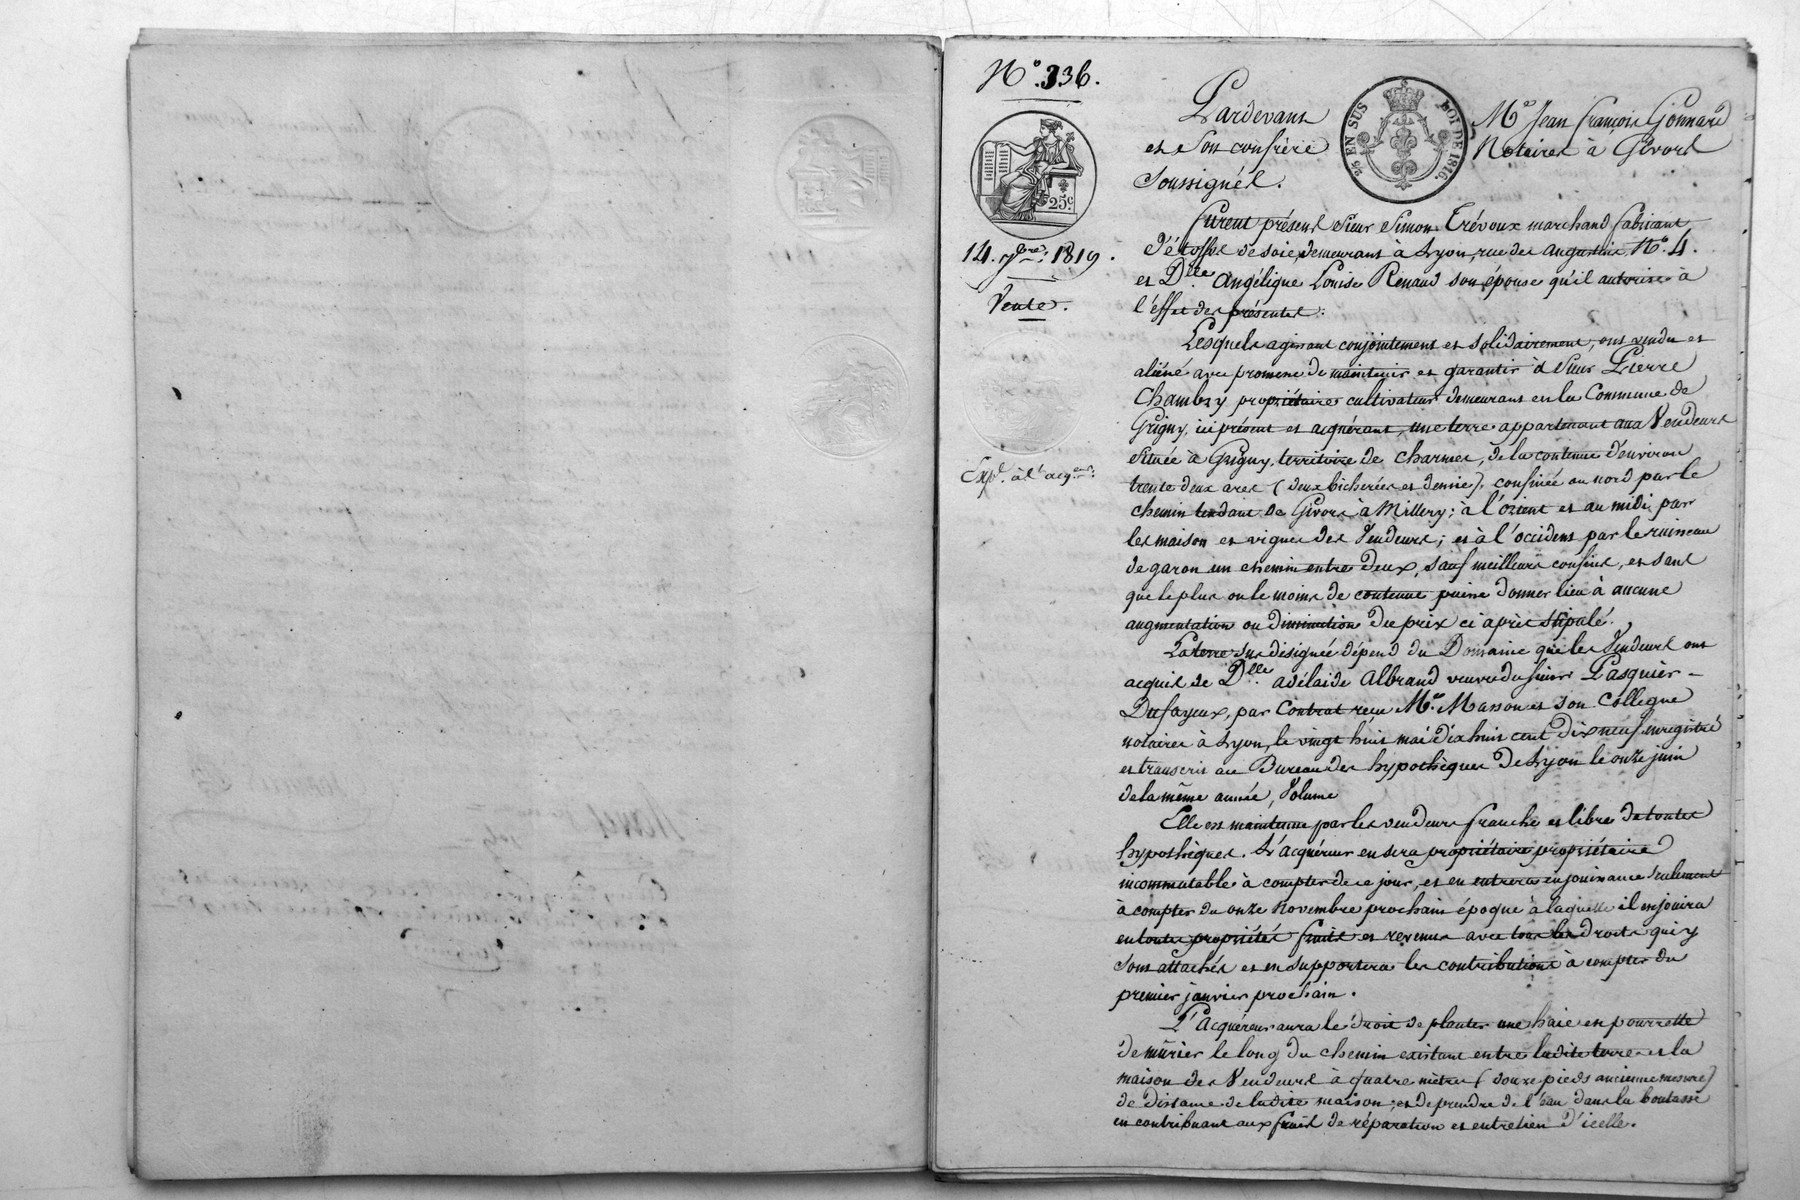 N.° 336.
25 EN SUS
LOI DE 1816.
25.c
14. 7bre. 1819.
Vente.
Exp.é à l'acq.eur:
Pardevant Me Jean François Gonnard
et son confrère Notaires à Givors
soussignés.
furent présens Sieur Simon Trévoux marchand fabricant
d'étoffes de soie, demeurant à Lyon, rue des Augustins N.° 4.
et D.lle Angélique Louise Renaud son épouse qu'il autorise à
l'effet des présentes:
Lesquels agissant conjointement et solidairement, ont vendu et
aliéné avec promesse de maintenir et garantir à Sieur Pierre
Chambry propriétaire cultivateur demeurant en la Commune de
Grigny, ici présent et acquérant, une terre appartenant aux Vendeurs
située à Grigny, territoire de Charmes, de la contenue d'environ
trente deux ares (deux bicherées et demie), confinée au nord par le
chemin tendant de Givors à Millery; à l'orient et au midi par
les maison et vignes des Vendeurs; et à l'occident par le ruisseau
de garon un chemin entre deux, sauf meilleurs confins, et sans
que le plus ou le moins de contenue puisse donner lieu à aucune
augmentation ou diminution du prix ci après stipulé.
La terre sus désignée dépend du Domaine que les Vendeurs ont
acquis de D.lle adélaïde Albrand veuve du sieur Pasquier-
Dufayeux, par Contrat reçu Me. Masson et son Collegue
notaires à Lyon, le vingt huit mai dix huit cent dix neuf, enregistré
et transcrit au Bureau des hypothèques de Lyon le onze juin
de la même année, Volume
Elle est maintenue par les vendeurs franche et libre de toutes
hypothèques. L'acquéreur en sera propriétaire propriétaire
incommutable à compter de ce jour, et en entrera en jouissance seulement
à compter du onze novembre prochain époque à laquelle il en jouira
en toutes propriétés fruits et revenus avec tous les droits qui y
sont attachés et en supportera les contributions à compter du
premier janvier prochain.
L'Acquéreur aura le droit de planter une haie en pourrette
de mûrier le long du chemin existant entre ladite terre et la
maison des Vendeurs à quatre mètres (douze pieds ancienne mesure)
de distance de ladite maison; et de prendre de l'eau dans la boutasse
en contribuant aux frais de réparation et entretien d'icelle.